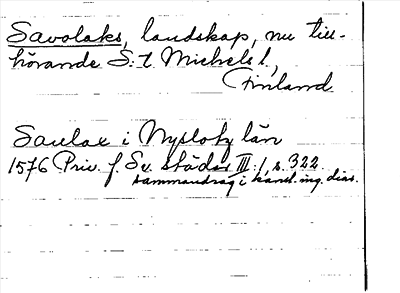 Savolaks, landskap, nu till-
hörande S:t Michels l.,
Finland
Savlax i Nyslotz län
1576 Priv. f. Sv. städer III:1, s. 322.
sammandrag i kansl. ing. dias.